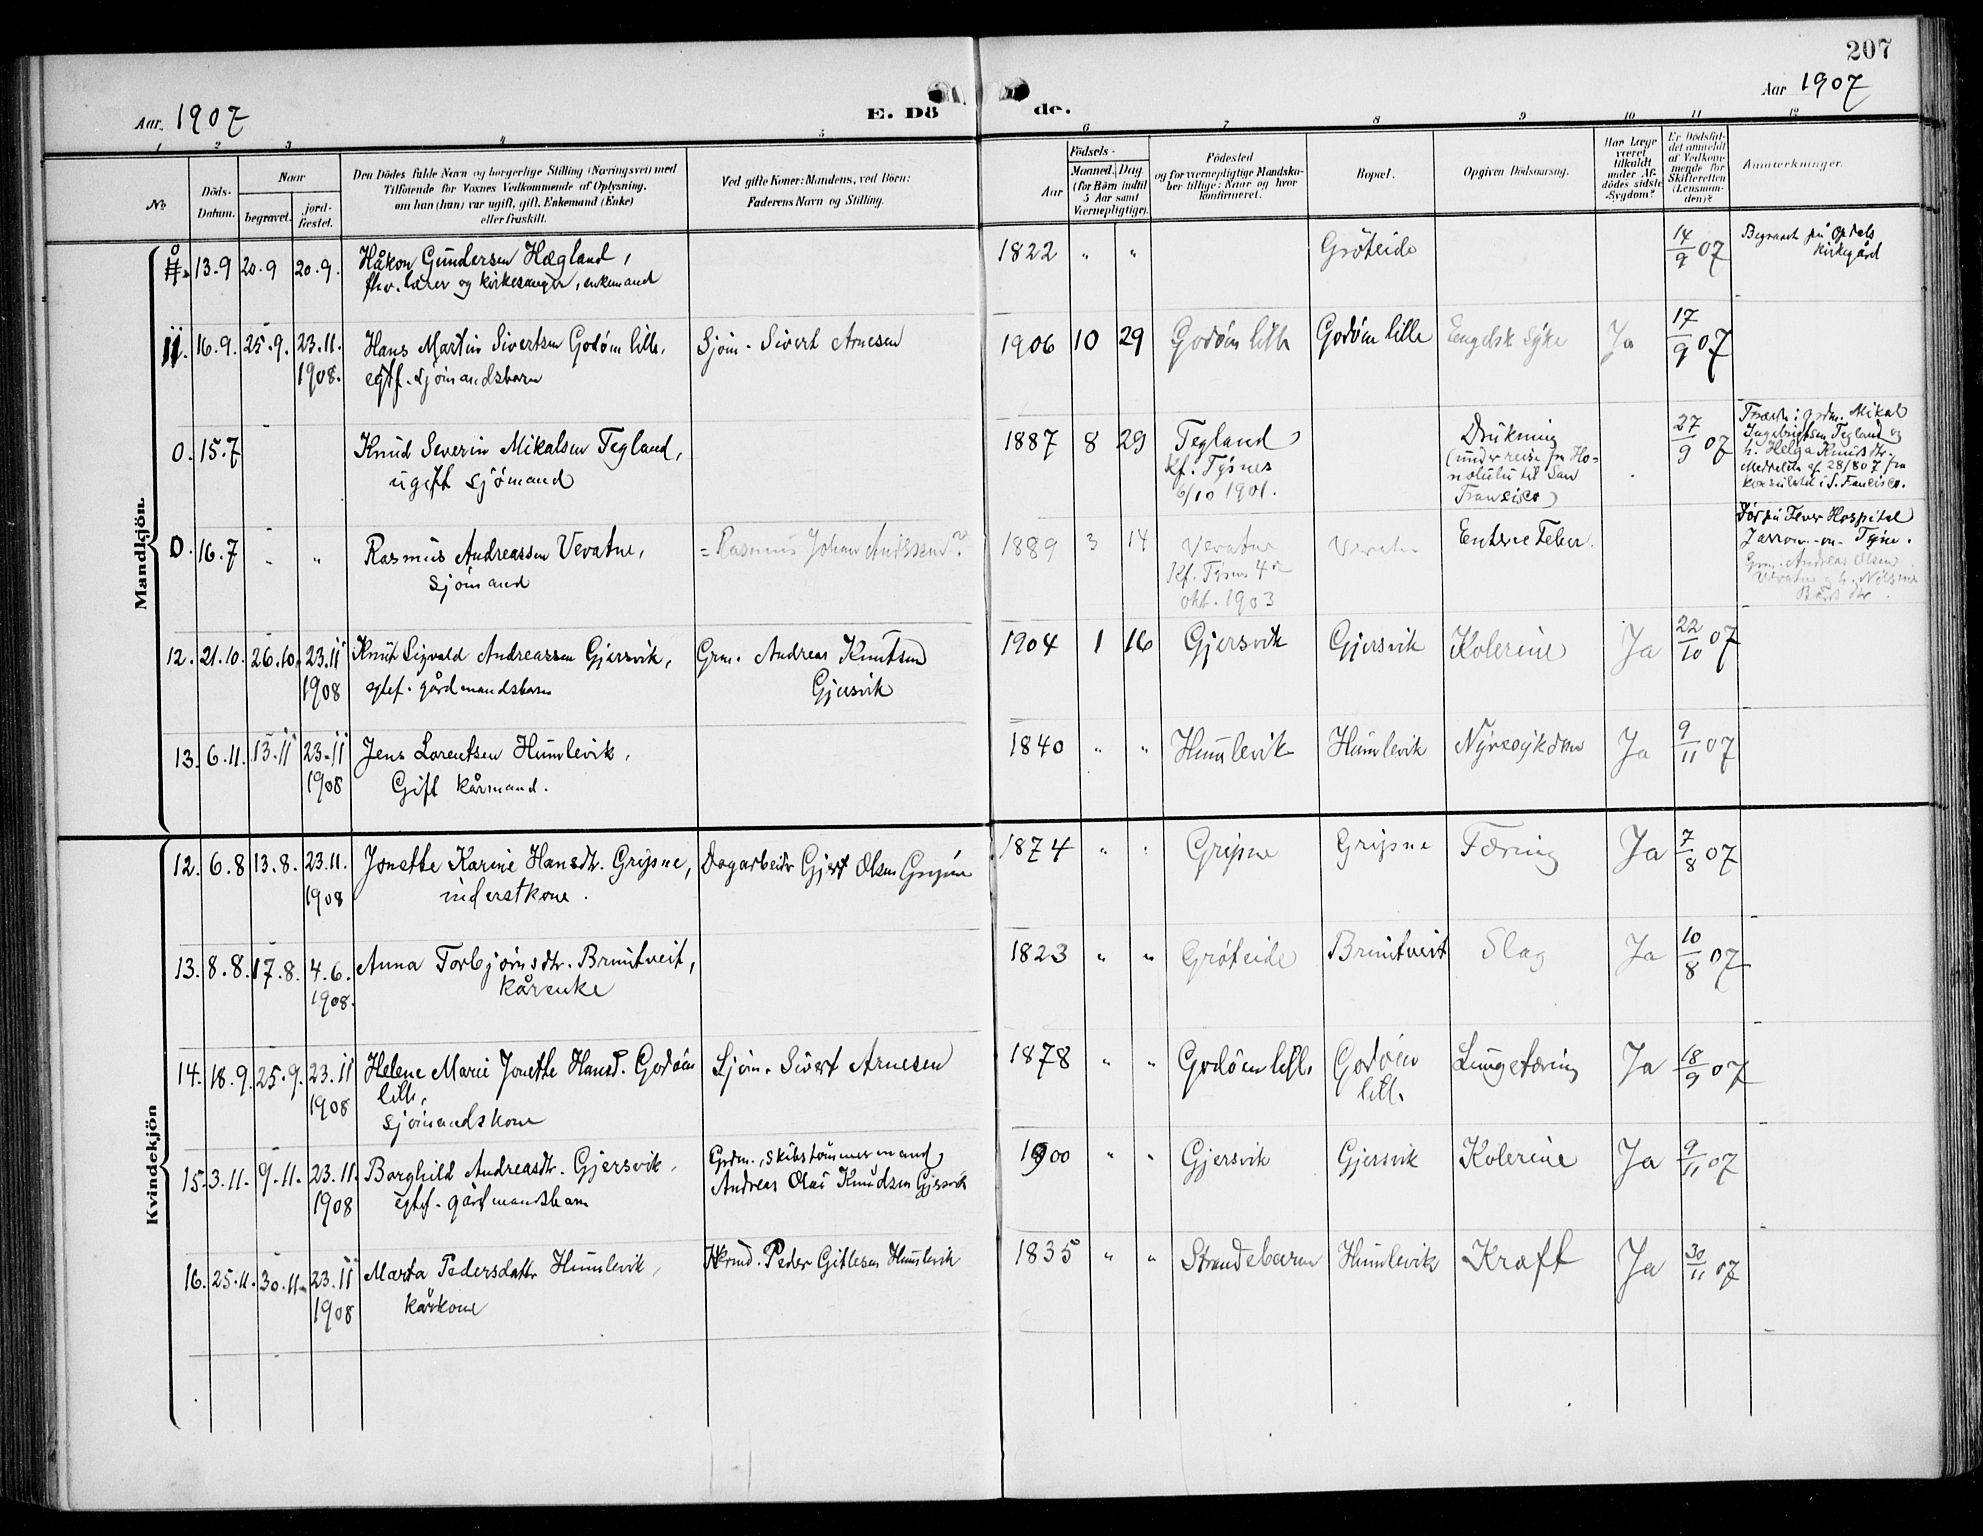 207
Aar 1907
E. Dö de.
Aar 1907
1 2 3 4 5 6 7 8 9 10 11 12
No.
Döds-Datum.
Naar
begravet.
jord-fæstet.
Den Dödes fulde Navn og borgerlige Stilling (Næringsvei) med
Tilföiende for Voxnes Vedkommende af Oplysning.
om han (hun) var ugift, gift, Enkemand (Enke)
eller fraskilt.
Ved gifte Koner: Mandens, ved Börn:
Faderens Navn og Stilling.
Födsels-
Aar
Maaned. Dag.
(for Börn indtil
5 Aar samt
Værnepligtige).
Födested
og for værnepligtige Mandska-
ber tillige: Naar og hvor
konfirmeret.
Bopæl.
Opgiven Dödsaarsag.
Har Læge
været
tilkaldt
under Af-
dödes sidste
Sygdom?
Er Dödsfal-
det anmeldt
af Vedkom-
mende for
Skifteretten
(Lensman-
den)?
Anmærkninger.
Mandkjön.
13.9 20.9 20.9. Håkon Gundersen Hægland, 1822 " " Grøteide 14/9 07 Begravet på Opdals
fhv. lærer og kirkesanger, enkemand kirkegård
11. 16.9. 25.9. 23.11. Hans Martin Sivertsen Godøen lille, Sjøm. Sivert Arnesen 1906 10 29 Godøen lille Godøen lille Engelsk syke Ja 17/9 07
1908. egtef. sjømandsbarn
0. 15.7 Knud Severin Mikalsen Tegland, 1887 8 29 Tegland Drukning 27/9 07 Mikal
ugift sjømand Kf. Tysnes (under reise fra Ho- Ingebrigtsen Tegland og
6/10 1901. nolulu til San h. Helga Knudsdtr.
Francisco) Meddelelse af 28/8 07 fra
konsulatet i S. Francisco.
0. 16.7 " " Rasmus Andreassen Vevatne, = Rasmus Johan Andersen? 1889 3 14 Vevatne Vevatne Enteric Fever Død på Fever Hospital
sjømand Kf. Tysnes 4de Jarrow-on-Tyne.
okt. 1903 Grm. Andreas Olsen
Vevatne og h.
12. 21.10. 26.10. 23.11 Knut Sigvald Andreassen Gjersvik, Grm. Andreas Knutsen 1904 1 16 Gjersvik Gjersvik Kolerine Ja 22/10 07
1908 egtef. gårdmandsbarn Gjersvik
13. 6.11. 13.11 23.11 Jens Lorentsen Humlevik, 1840 " " Humlevik Humlevik Nyresykdom Ja 9/11 07
1908 Gift kårmand.
Kvindekjön
12. 6.8 13.8. 23.11. Jonette Karine Hansdtr. Gripne, Dagarbeider Gjert Olsen Gripne 1874 " " Gripne Gripne Tæring Ja 7/8 07
1908 inderstkone.
13. 8.8. 17.8. 4.6. Anna Torbjørnsdtr. Bruntveit, 1823 " " Grøteide Bruntveit Slag Ja 10/8 07
1908. kårenke
14. 18.9. 25.9. 23.11 Helene Marie Jonette Hansd. Godøen Sjøm. Sivert Arnesen 1878 " " Godøen lille Godøen Lungetæring Ja 18/9 07
1908 lille, lille
sjømandskone
15. 3.11. 9.11. 23.11. Borghild Andreasdtr. Gjersvik, Grdm., skibstømmermand, 1900 " " Gjersvik Gjersvik Kolerine Ja 9/11 07
1908 egtef. gårdmandsbarn Andreas Olai Knudsen Gjersvik
16. 25.11. 30.11. 23.11 Marta Pedersdatter Humlevik, Peder Gitlesen Humlevik 1835 " " Strandebarm Humlevik Kræft Ja 30/11 07
1908 kårkone